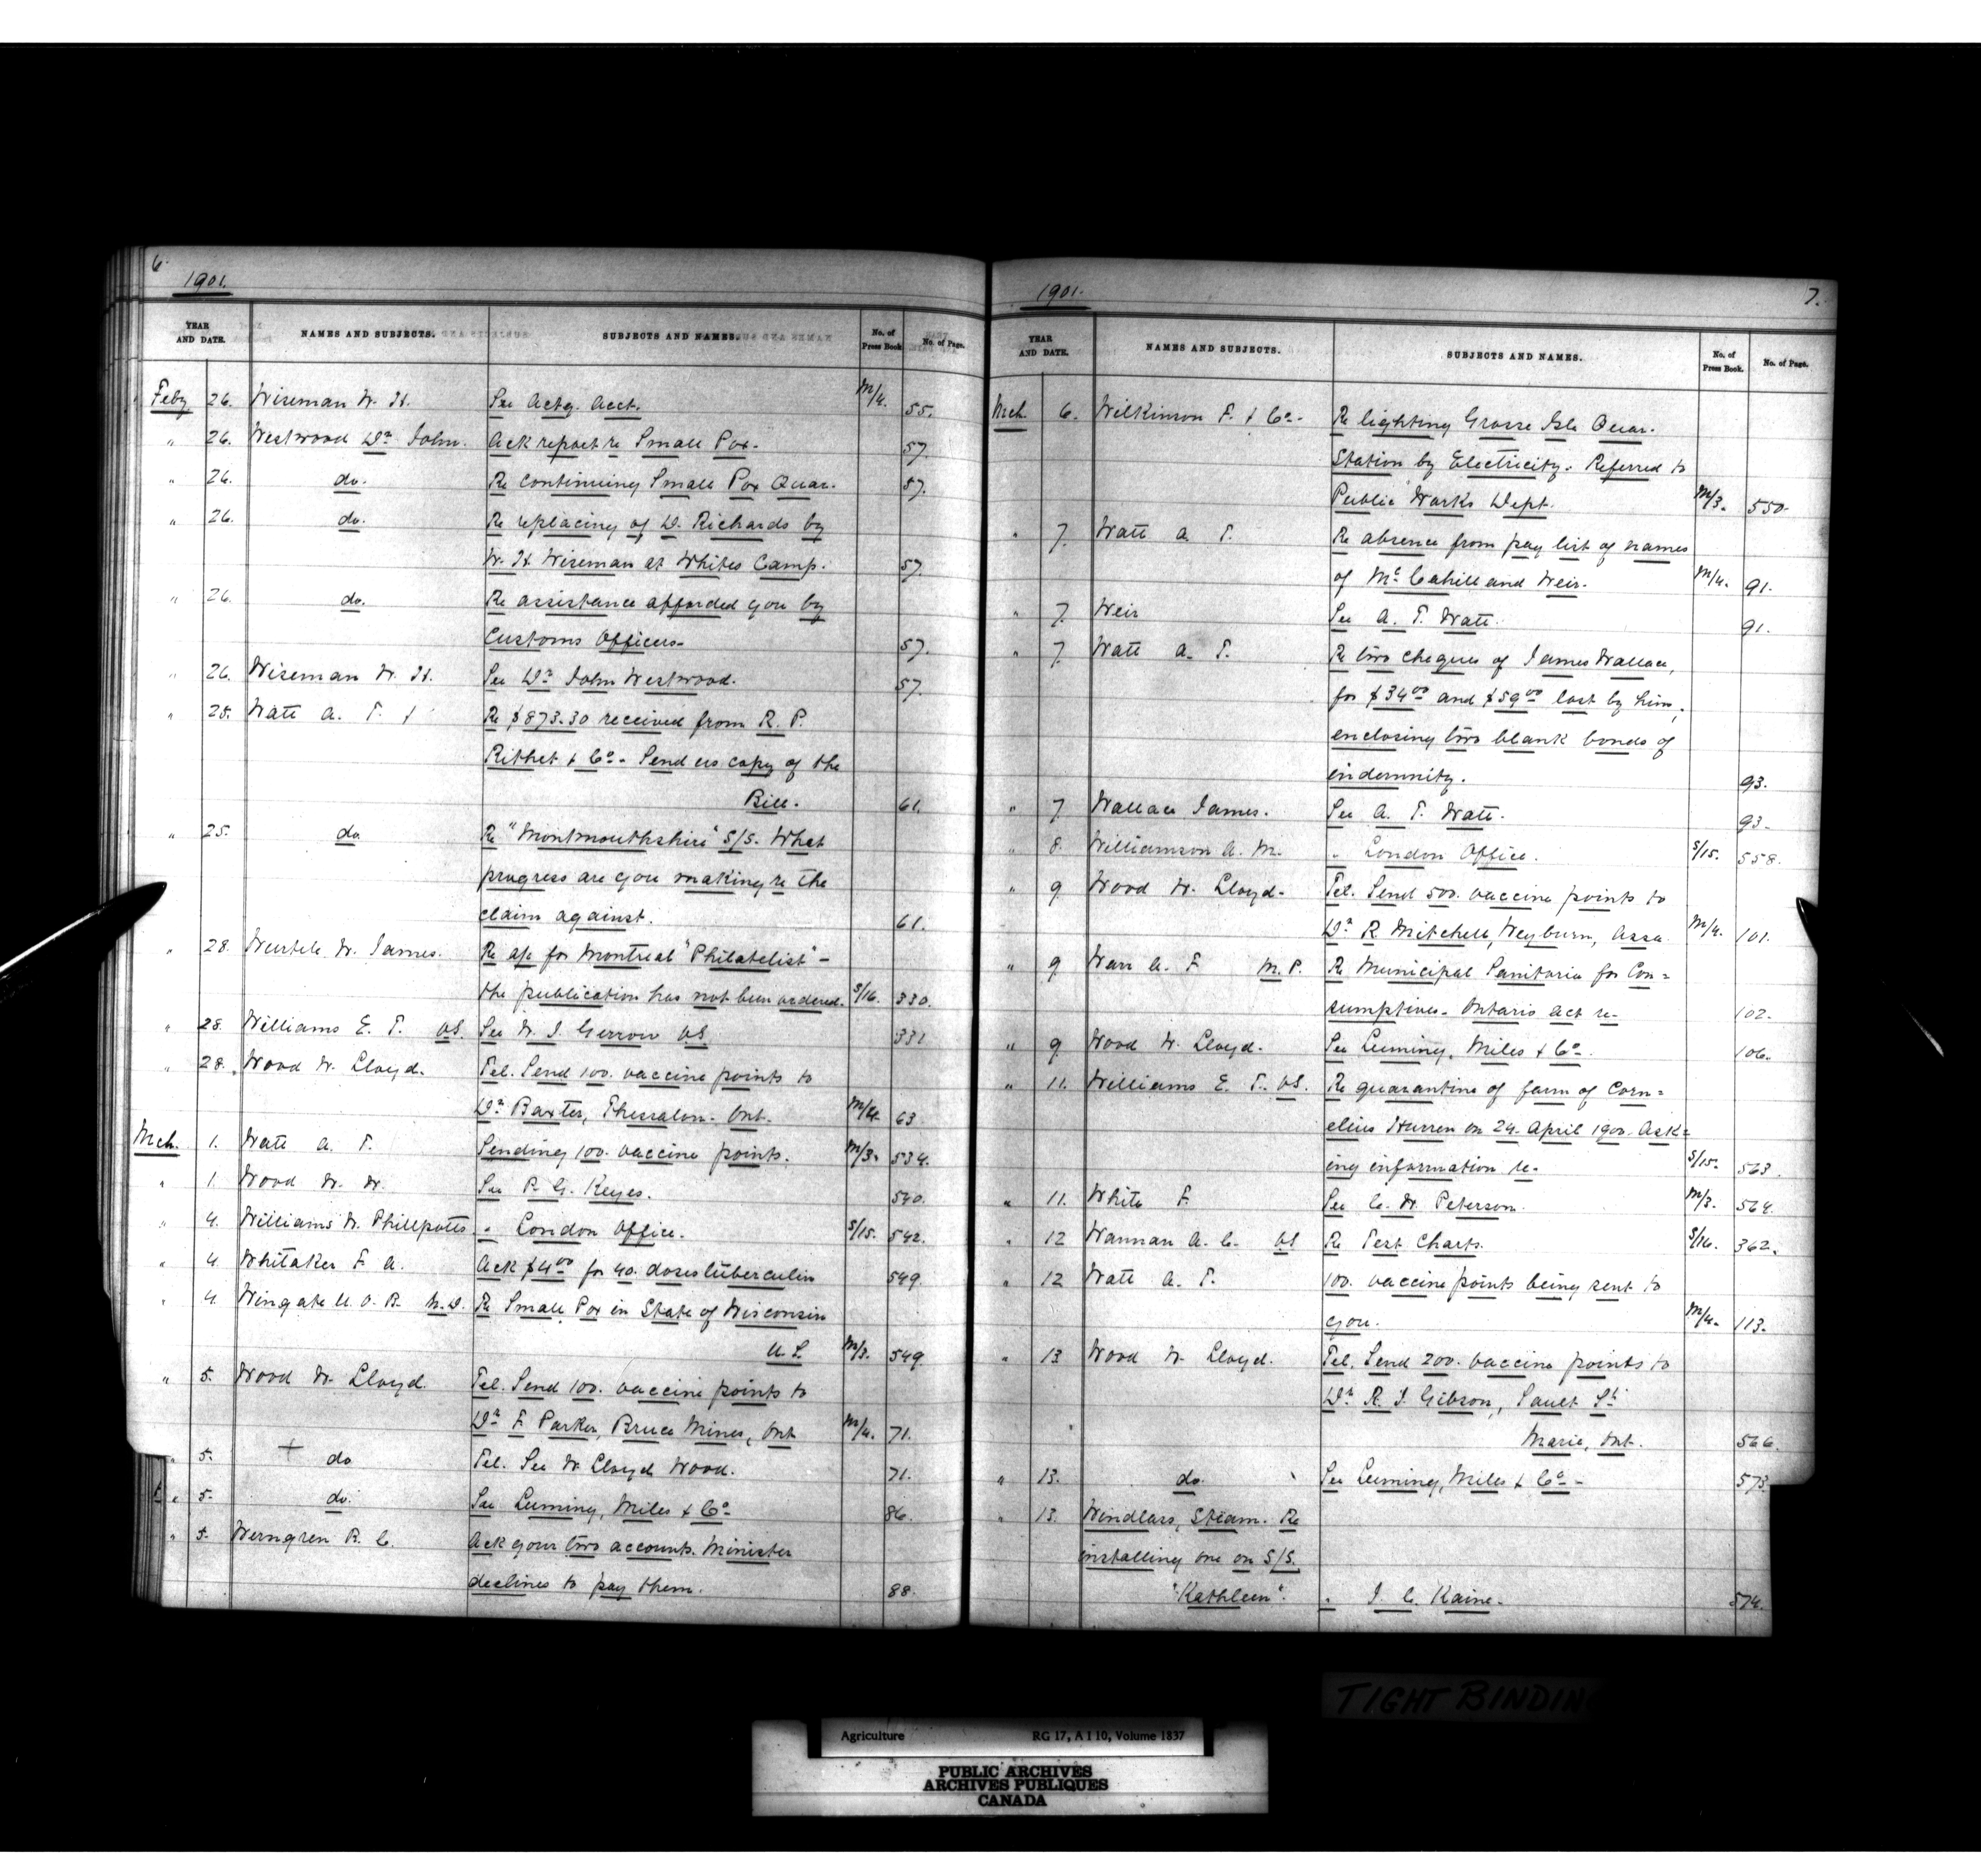 6.
1901.
YEAR AND DATE. NAMES AND SUBJECTS. SUBJECTS AND NAMES. No. of Press Book No. of Page.
Feby 26. Wiseman W. H. See Actg. Acct. M/4. 55.
" 26. Westwood Dr John. Ack report re Small Pox. 57.
" 26. do. Re continuing Small Pox Quar. 57.
" 26. do. Re replacing of D. Richards by
W. H. Wiseman at Whites Camp. 57.
" 26. do. Re assistance afforded you by
Customs Officers- 57.
" 26. Wiseman W. H. See Dr John Westwood. 57.
" 25. Watt A. T. Re $873.30 received from R. P.
Rithet & Co- Send us copy of the
Bill. 61.
" 25. do Re "Montmouthshire" S/S. What
progress are you making re the
claim against. 61.
" 28. Wurtele W. James. Re a/c for Montreal "Philatelist"-
the publication has not been ordered. S/16. 330.
" 28. Williams E. T. VS. See W. J. Gerrow VS. 331
" 28. Wood W. Lloyd. Tel. Send 100. vaccine points to
Dr Baxter, Thessalon. Ont. M/4. 63
Mch. 1. Watt A. T. Sending 100. vaccine points. M/3. 534.
" 1. Wood W. W. See P. G. Keyes. 540.
" 4. Williams W. Phillpotts " London Office. S/15. 542.
" 4. Whitaker F. A. Ack $4.00 for 40. doses tuberculin 549.
" 4. Wingate U. O. B. M.D. Re Small Pox in State of Wisconsin
U. S. M/3. 549
" 5. Wood W. Lloyd. Tel. Send 100. vaccine points to
Dr F. Parker, Bruce Mines, Ont M/4. 71.
" 5. + do Tel. See W. Lloyd Wood. 71.
" 5. do. See Leeming, Miles & Co- 86.
" 5. Werngren R. C. Ack your two accounts. Minister
declines to pay them. 88.
1901.
7.
YEAR AND DATE. NAMES AND SUBJECTS. SUBJECTS AND NAMES. No. of Press Book. No. of Page.
Mch. 6. Wilkinson F. & Co- Re lighting Grosse Isle Quar.
Station by Electricity. Referred to
Public Works Dept. M/3. 550.
" 7. Watt A. T. Re absence from pay list of names
of McCahill and Weir. M/4. 91.
" 7. Weir See A. T. Watt. 91.
" 7. Watt A. T. Re two cheques of James Wallace,
for $34.00 and $59.00 lost by him,
enclosing two blank bonds of
indemnity. 93.
" 7. Wallace James. See A. T. Watt. 93.
" 8. Williamson A. M. " London Office. S/15. 558.
" 9. Wood W. Lloyd- Tel. Send 500. vaccine points to
Dr R. Mitchell, Weyburn, Assa. M/4. 101.
" 9. M. P. Re Municipal Sanitaria for Con=
sumptives- Ontario Act re- 102.
" 9. Wood W. Lloyd. See Leeming, Miles & Co-. 106.
" 11. Williams E. T. VS. Re quarantine of farm of Corn=
elius Hurren on 24. April 1900. Ask=
ing information re- S/15. 563.
" 11. White F. See C. W. Peterson. M/3. 564.
" 12 Wanman A. C. VS Re Test Charts. S/16. 362.
" 12 Watt A. T. 100. vaccine points being sent to
you. M/4. 113.
" 13 Wood W. Lloyd. Tel. Send 200. vaccine points to
Dr R. J. Gibson, Sault St
Marie, Ont. 566.
" 13. do. See Leeming, Miles & Co- 573.
" 13. Windlass, Steam. Re
installing one on S/S.
"Kathleen". " J. C. Kaine. 574.
TIGHT BINDIN
Agriculture RG 17, A I 10, Volume 1837
PUBLIC ARCHIVES
ARCHIVES PUBLIQUES
CANADA